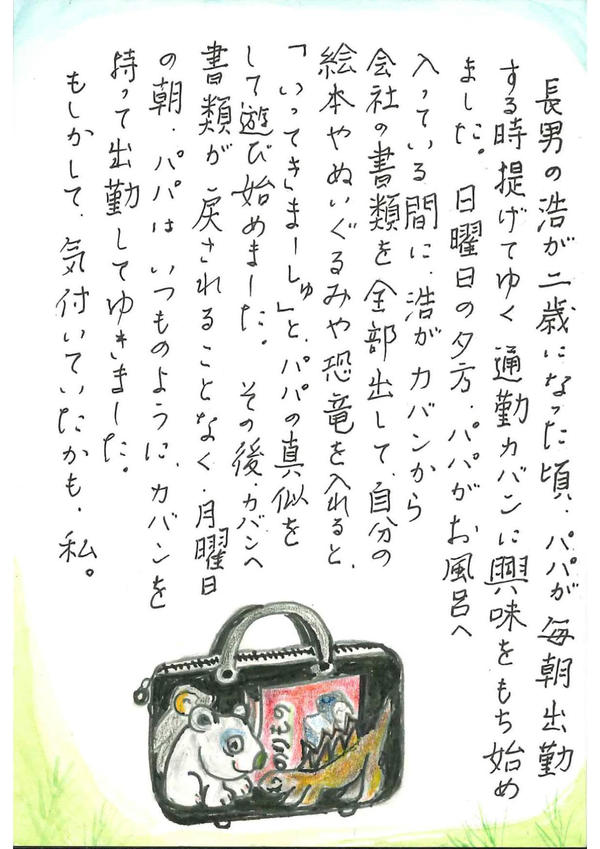 長男の浩が二歳になった頃、パパが毎朝出勤
する時提げてゆく通勤カバンに興味をもち始め
ました。日曜日の夕方、パパがお風呂へ
入っている間に、浩がカバンから
会社の書類を全部出して、自分の
絵本やぬいぐるみや恐竜を入れると、
「いってきまーしゅ」と、パパの真似を
して遊び始めました。その後、カバンへ
書類が戻されることなく、月曜日
の朝、パパはいつものように、カバンを
持って出勤してゆきました。
もしかして、気付いていたかも、私。
のりもの